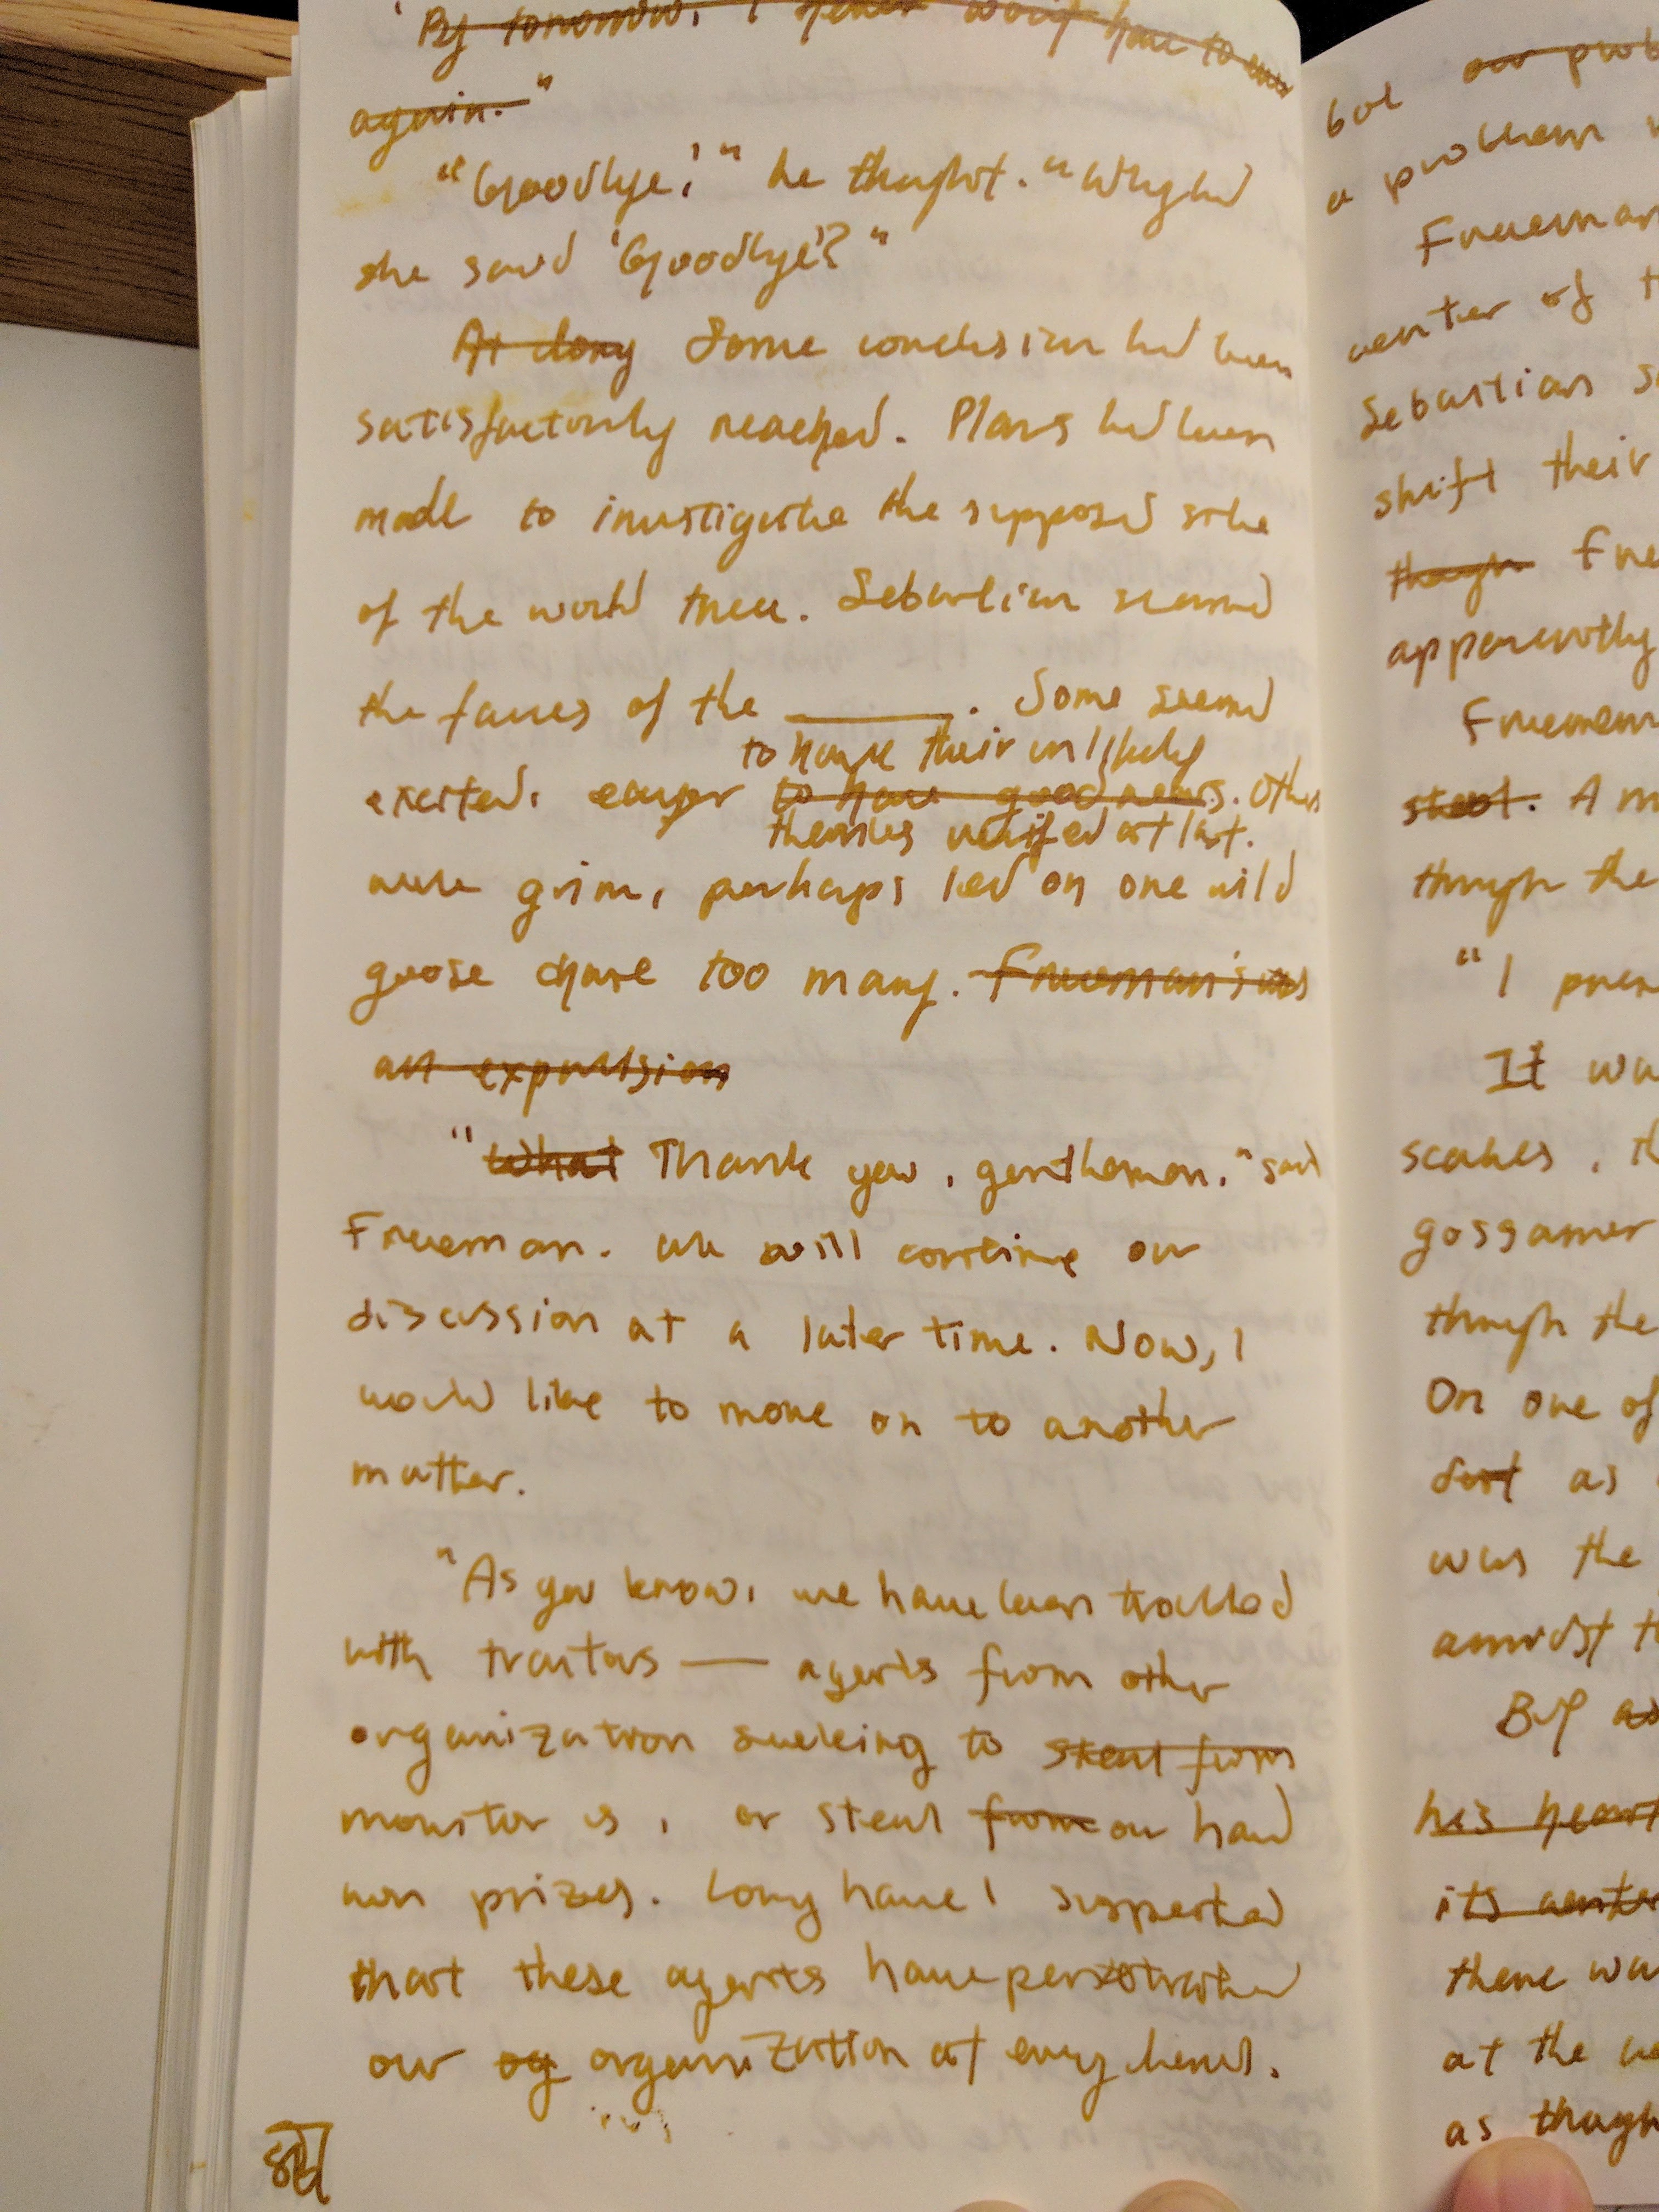 By tomorrow, I never have to
again."
"Goodbye," he thought. "Why had
she said 'Goodbye'?"
At long Some conclusion had been
satisfactorily reached. Plans had been
made to investigate the supposed site
of the world tree. Sebastian scanned
the faces of the ______. Some seemed
to have their unlikely
excited, eager to have good news. Others
theories verified at last.
were grim, perhaps led on one wild
goose chase too many. Freeman's was
an expression
"What Thank you, gentlemen," said
Freeman. We will continue our
discussion at a later time. Now, I
would like to move on to another
matter.
"As you know, we have been troubled
with traitors — agents from other
organization seeking to steal from
monitor us, or steal from our hard
won prizes. Long have I suspected
that these agents have penetrated
our og organization at every level.
but our prob
a problem
Freeman
center of t
Sebastian s
shift their
though Free
apparently
Freeman
steal. A m
through the
"I
It wa
scales, th
gossamer
through the
On one of
as
was the
amidst t
But as
his heart
its center
there wa
at the
as though